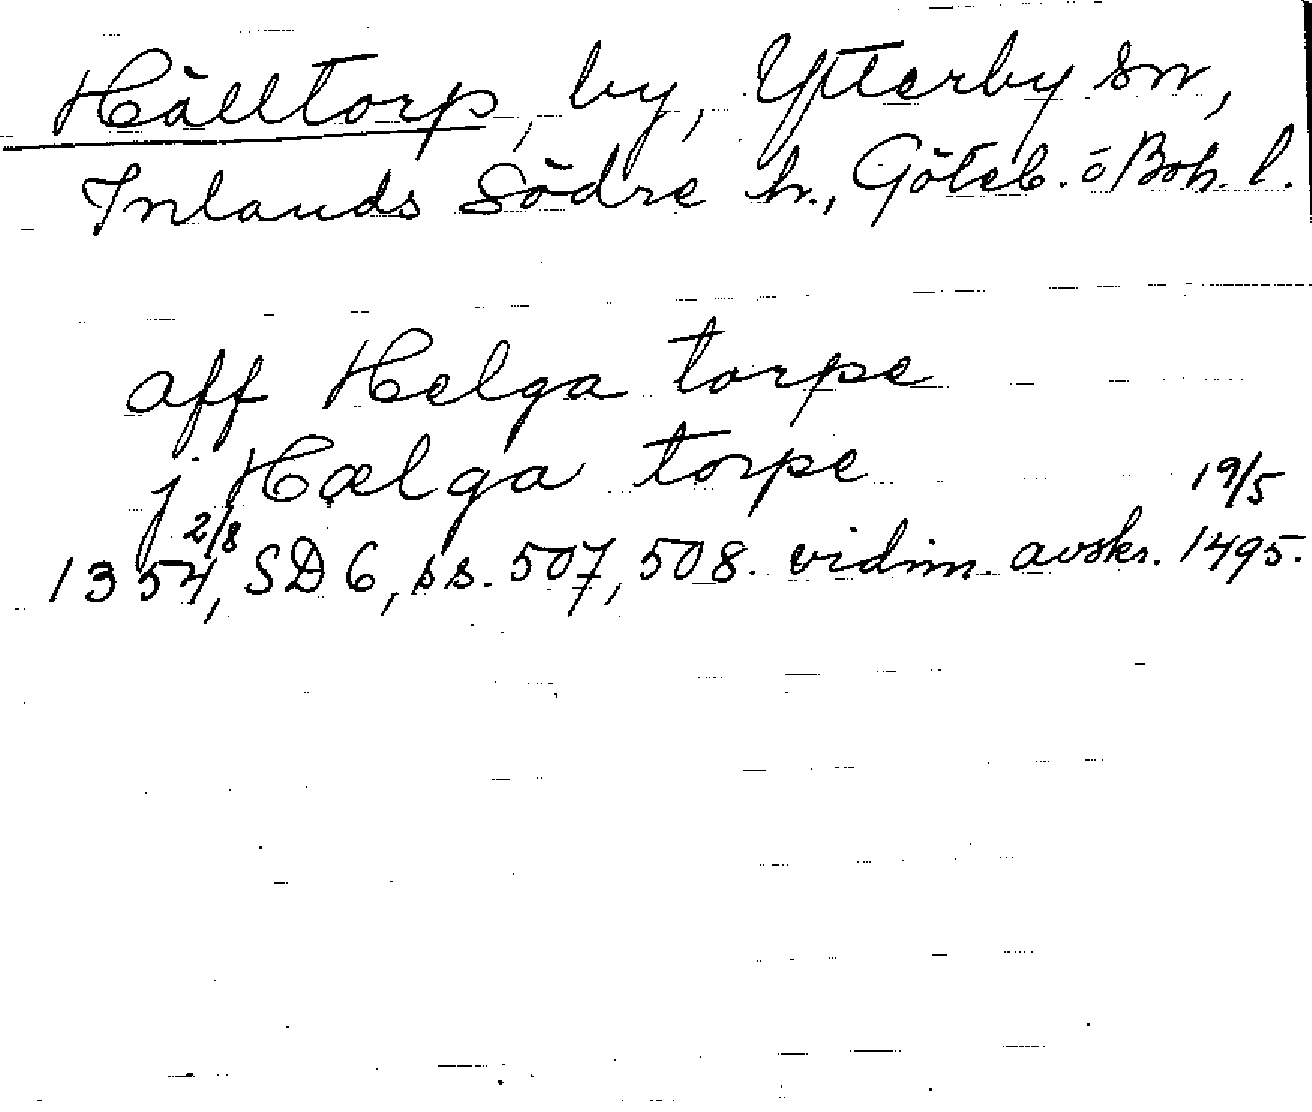 Hålltorp, by, Ytterby sn,
Inlands Södre hr., Göteb. o Boh. l.
aff Helga torpe
j Hælga torpe
2/8 1354, SD 6, ss. 507, 508. vidim. avskr. 19/5 1495.